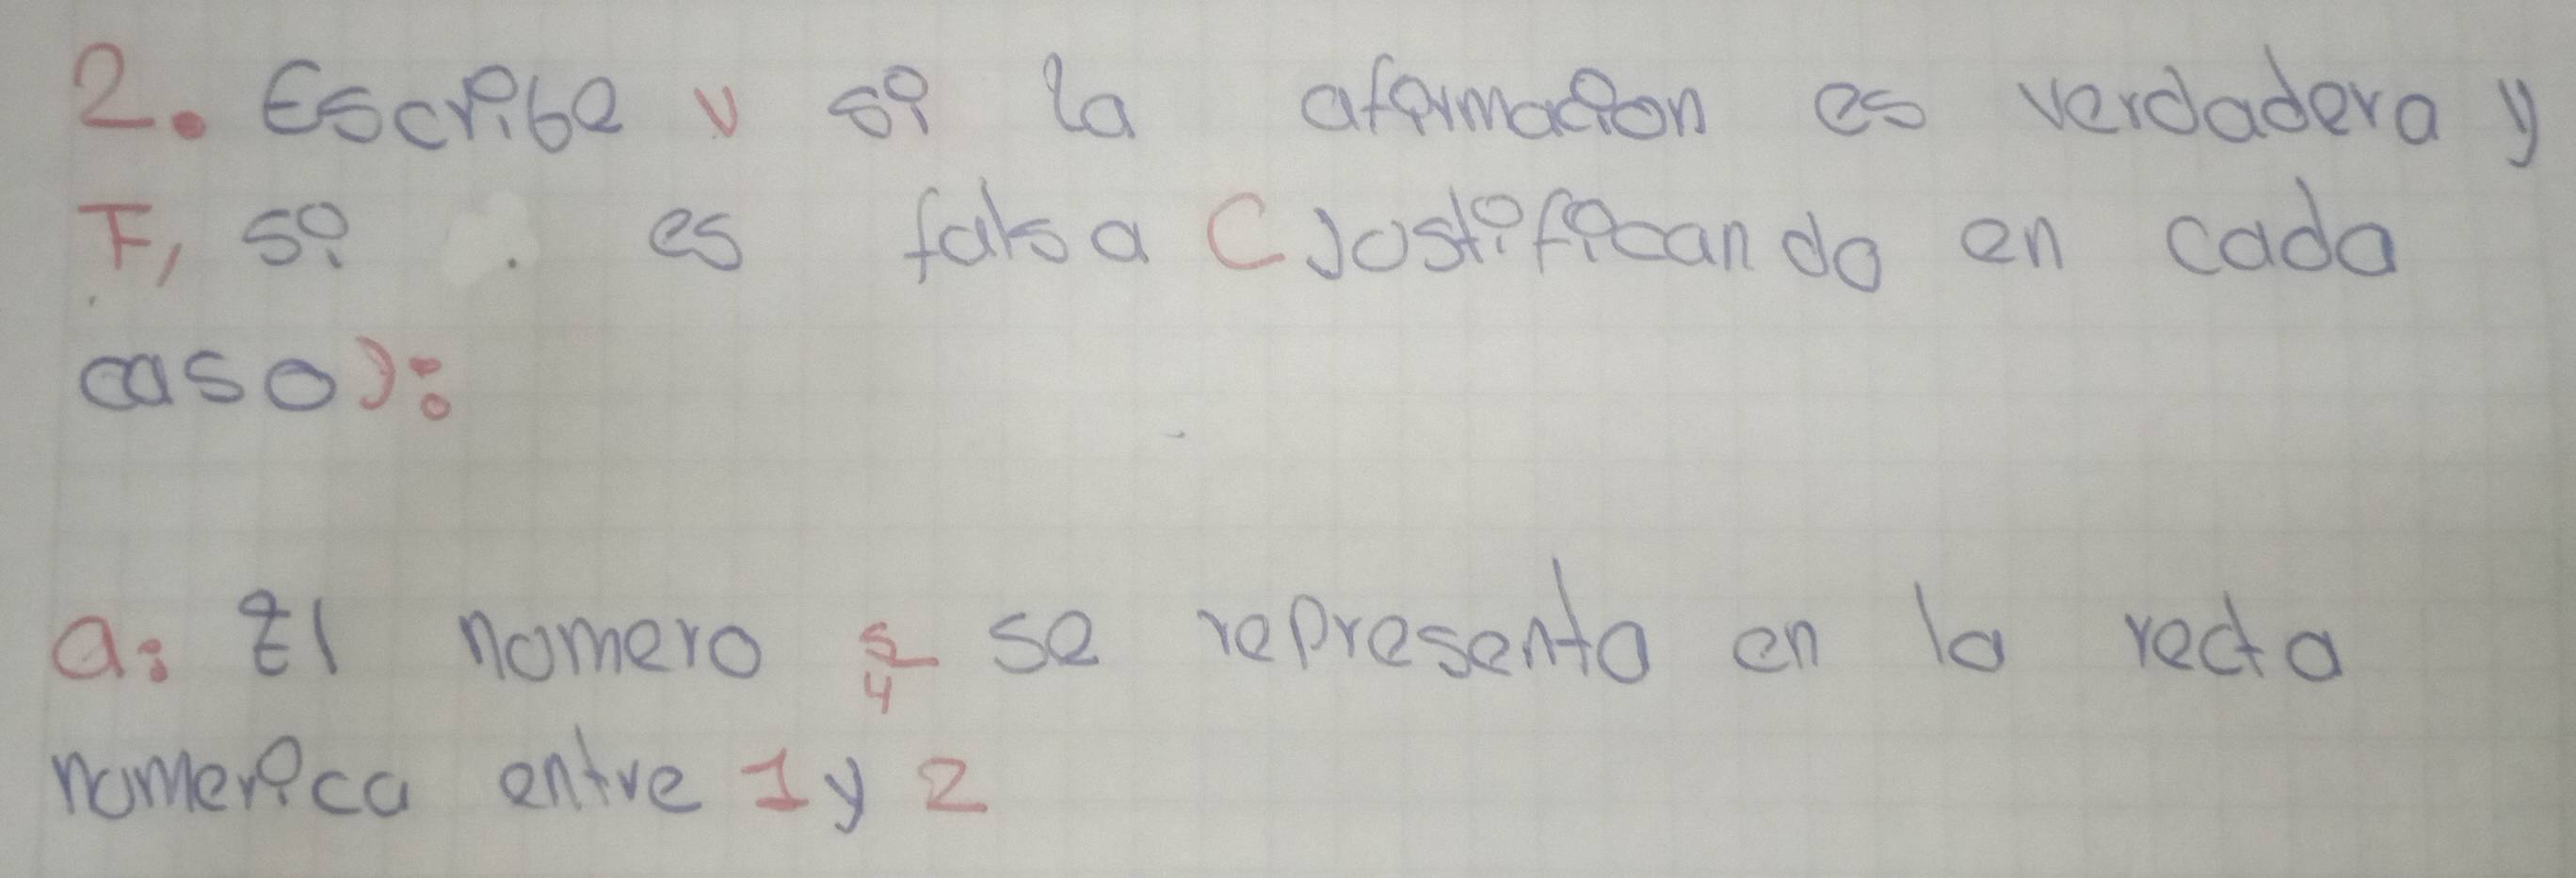 2. Escribe v si la afirmacion es verdadera y
F, si es falsa (Justificando en cada
caso):
a: El numero 5/4 se representa en la recta
numerica entre 1 y 2